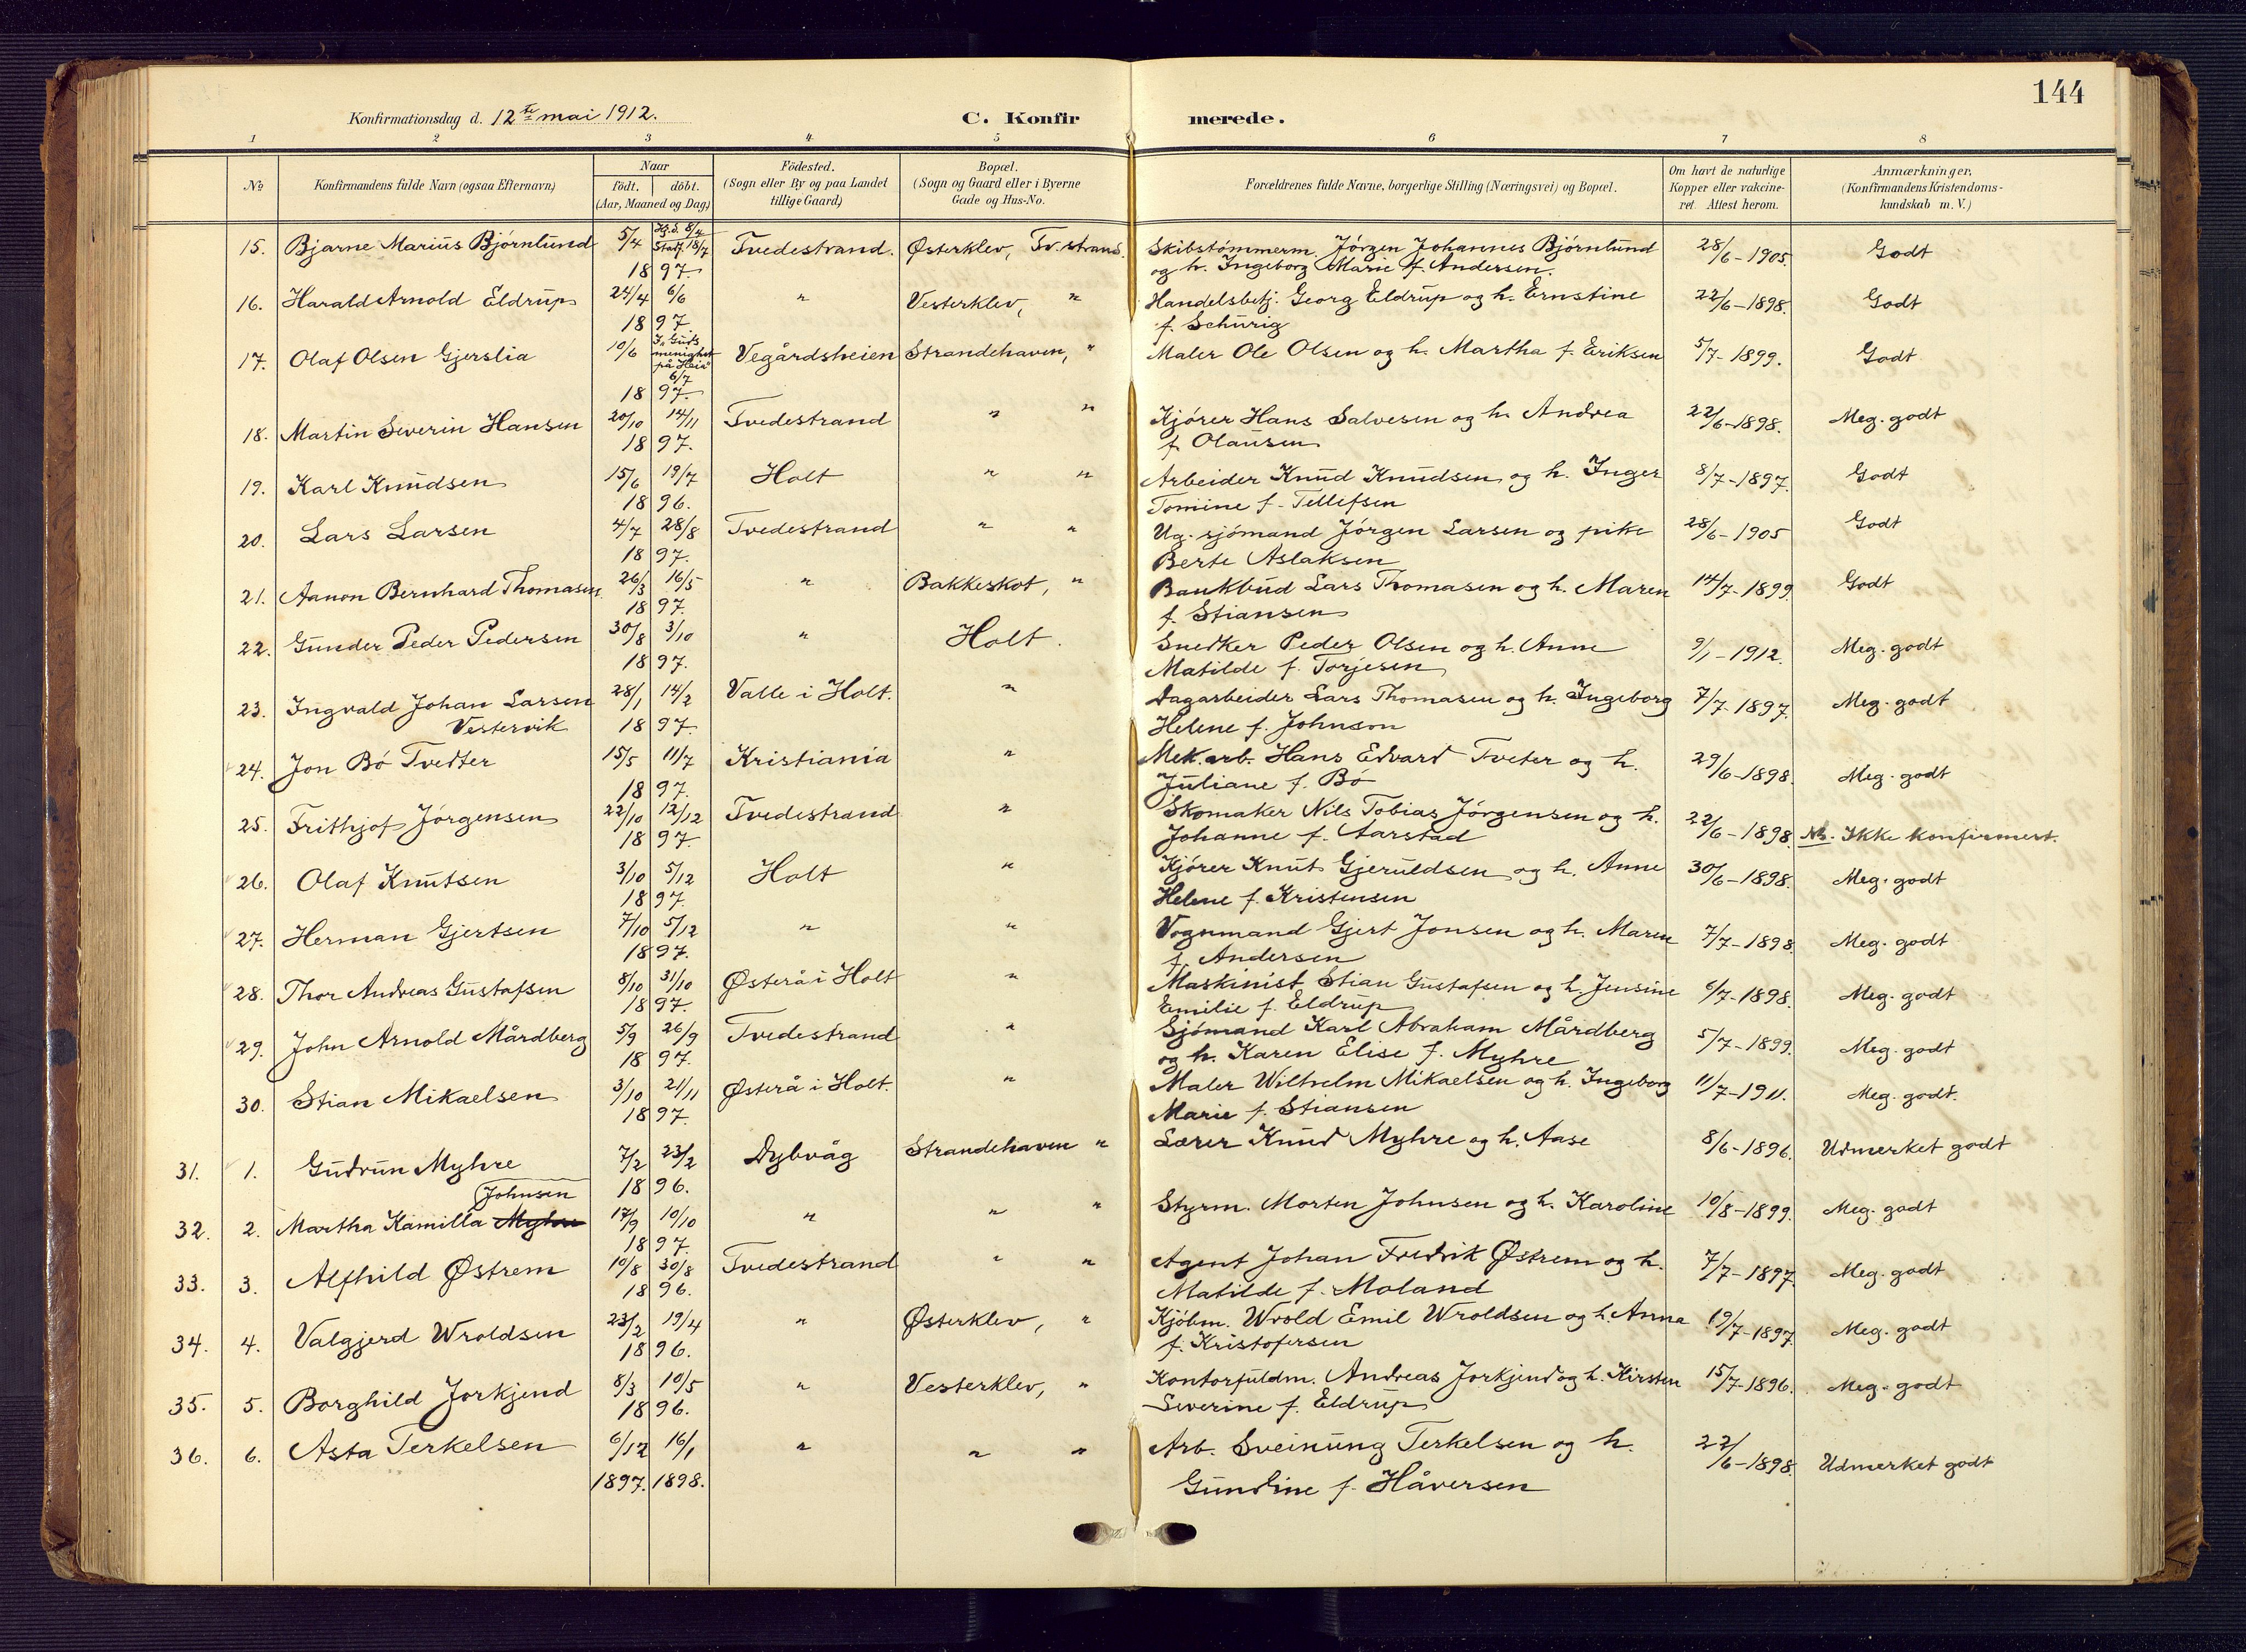 144
Konfirmationsdag d. 12te mai 1912.
C. Konfirmerede.
1 2 3 4 5 6 7 8
No
Konfirmandens fulde Navn (ogsaa Efternavn)
Naar
födt. döbt.
(Aar, Maaned og Dag)
Födested.
(Sogn eller By og paa Landet
tillige Gaard)
Bopæl.
(Sogn og Gaard eller i Byerne
Gade og Hus-No.
Forældrenes fulde Navne, borgerlige Stilling (Næringsvei) og Bopæl.
Om havt de naturlige
Kopper eller vakcine-
ret. Attest herom.
Anmærkninger,
(Konfirmandens Kristendoms-
kundskab m. V.)
15. Bjarne Marius Bjørnlund 5/4 Hj.d. 8/4 Stadf. 18/7 Tvedestrand. Østerklev, Tv.strand. Skibstømmerm. Jørgen Johannes Bjørnlund 28/6-1905. Godt
1897. og h. Ingeborg Marie f. Andersen.
16. Harald Arnold Eldrup 24/4 6/6 " Vesterklev, " Handelsbetj. Georg Eldrup og h. Ernstine 22/6-1898. Godt
1897. f. Schürig
17. Olaf Olsen Gjerslia 10/6 I Guds menighet på Heia 6/7 Vegårdsheien Strandehaven, " Maler Ole Olsen og h. Martha f. Eriksen 5/7-1899. Godt
1897.
18. Martin Severin Hansen 20/10 14/11 Tvedestrand " " Kjører Hans Salvesen og h. Andrea 22/6-1898. Meg. godt
1897. f. Olausen
19. Karl Knudsen 15/6 19/7 Holt " " Arbeider Knud Knudsen og h. Inger 8/7-1897. Godt
1896. Tomine f. Tellefsen
20. Lars Larsen 4/7 28/8 Tvedestrand " " Ug. sjømand Jørgen Larsen og pike 28/6-1905 Godt
1897. Berte Aslaksen
21. Aanon Bernhard Thomasen 26/3 16/5 " Bakkeskot, " Bankbud Lars Thomasen og h. Maren 14/7-1899. Godt
1897. f. Stiansen
22. Gunder Peder Pedersen 30/8 3/10 " Holt. Snedker Peder Olsen og h. Anne 9/1-1912. Meg. godt
1897. Matilde f. Torjesen
23. Ingvald Johan Larsen 28/1 14/2 Valle i Holt. " Dagarbeider Lars Thomasen og h. Ingeborg 7/7-1897. Meg. godt
Vestervik 1897. Helene f. Johnson
24. Jon Bø Tvedter 15/5 11/7 Kristiania " Mek. arb. Hans Edvard Tveter og h. 29/6-1898. Meg. godt
1897. Juliane f. Bø
25. Frithjof Jørgensen 22/10 12/12 Tvedestrand " Skomaker Nils Tobias Jørgensen og h. 22/6-1898. Nb. Ikke konfirmert.
1897. Johanne f. Aarstad
26. Olaf Knutsen 3/10 5/12 Holt " Kjører Knut Gjeruldsen og h. Anne 30/6-1898. Meg. godt
1897. Helene f. Kristensen
27. Herman Gjertsen 7/10 5/12 " " Vognmand Gjert Jonsen og h. Maren 7/7-1898. Meg. godt
1897. f. Andersen
28. Thor Andreas Gustafsen 8/10 31/10 Østerå i Holt " Maskinist Stian Gustafsen og h. Jensine 6/7-1898. Meg. godt
1897. Emilie f. Eldrup
29. John Arnold Mårdberg 5/9 26/9 Tvedestrand " Sjømand Karl Abraham Mårdberg 5/7-1899. Meg. godt
1897. og h. Karen Elise f. Myhre
30. Stian Mikaelsen 3/10 21/11 Østerå i Holt. " Maler Wilhelm Mikaelsen og h. Ingeborg 11/7-1911. Meg. godt.
1897. Marie f. Stiansen
31. 1. Gudrun Myhre 7/2 23/2 Dybvåg Strandehaven " Lærer Knud Myhre og h. Aase 8/6-1896. Udmerket godt
1896.
Johnsen
32. 2. Martha Kamilla Myhre 17/9 10/10 " " " Styrm. Morten Johnsen og h. Karoline 10/8-1899. Meg. godt
1897.
33. 3. Alfhild Østrem 10/8 30/8 Tvedestrand " " Agent Johan Fredrik Østrem og h. 7/7-1897. Meg. godt
1896. Matilde f. Moland
34. 4. Valgjerd Wroldsen 23/2 19/4 " Østerklev, " Kjøbm. Wrold Emil Wroldsen og h. Anna 19/7-1897. Meg. godt
1896. f. Kristofersen
35. 5. Borghild Jorkjend 8/3 10/5 " Vesterklev, " Kontorfuldm. Andreas Jorkjend og h. Kirsten 15/7-1896. Meg. godt
1896. Severine f. Eldrup
36. 6. Asta Terkelsen 6/12 16/1 " " " Arb. Sveinung Terkelsen og h. 22/6-1898. Udmerket godt
1897. 1898. Gundine f. Håversen